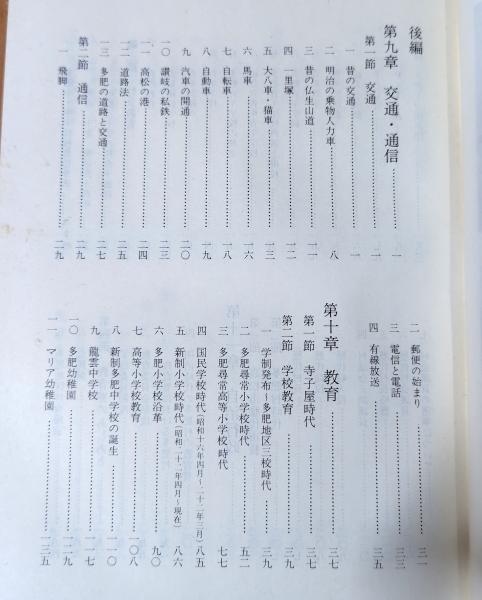 後編
第九章 交通・通信……一
第一節 交通……一
一 昔の交通……一
二 明治の乗物人力車……八
三 昔の仏生山道……一一
四 一里塚……一二
五 大八車・猫車……一三
六 馬車……一六
七 自転車……一八
八 自動車……一九
九 汽車の開通……二〇
一〇 讃岐の私鉄……二三
一一 高松の港……二四
一二 道路法……二五
一三 多肥の道路と交通……二七
第二節 通信……二九
一 飛脚……二九
二 郵便の始まり……三一
三 電信と電話……三三
四 有線放送……三五
第十章 教育……三七
第一節 寺子屋時代……三七
第二節 学校教育……三九
一 学制発布〜多肥地区三校時代……三九
二 多肥尋常小学校時代……五二
三 多肥尋常高等小学校時代……七七
四 国民学校時代(昭和十六年四月〜二十二年三月)……八五
五 新制小学校時代(昭和二十二年四月〜現在)……八六
六 多肥小学校沿革……九〇
七 高等小学校教育……一〇八
八 新制多肥中学校の誕生……一一〇
九 龍雲中学校……一一七
一〇 多肥幼稚園……一二九
一一 マリア幼稚園……一三五